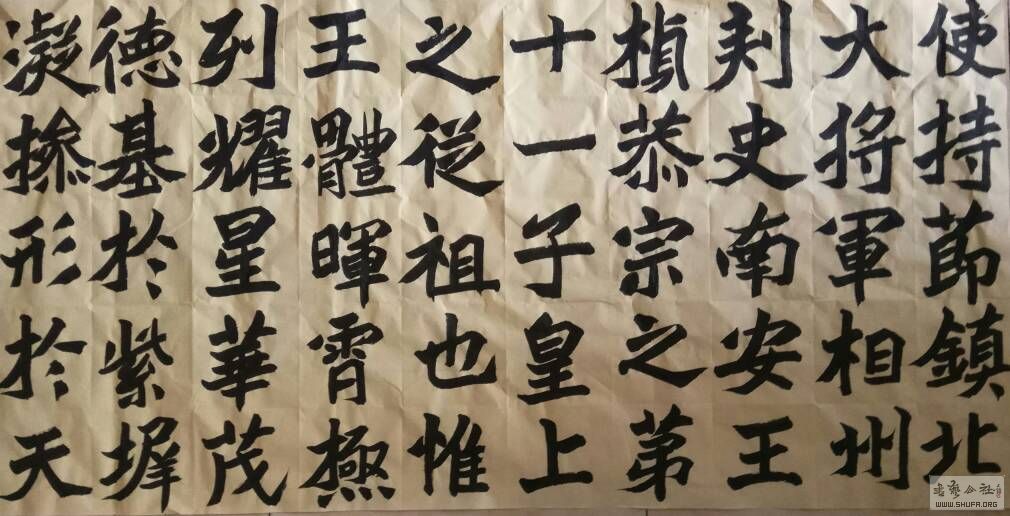 使持節鎮北
大将軍相州
刾史南安王
楨恭宗之第
十一子皇上
之從祖也惟
王體暉霄極
列耀星華茂
德基於紫墀
凝操形於天
書藝公社
WWW.SHUFA.ORG